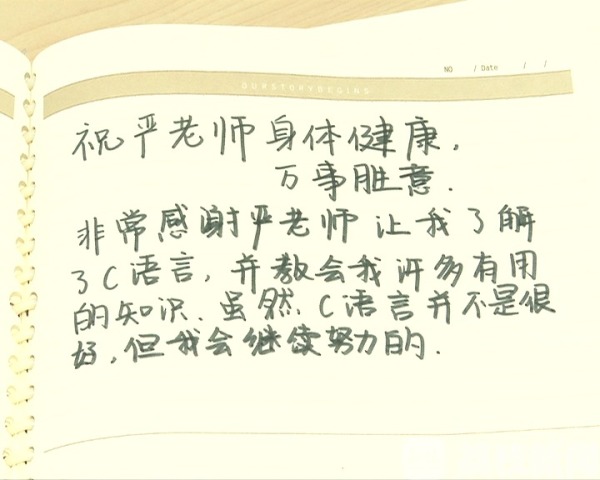 NO / Date / /
OURSTORYBEGINS
祝严老师身体健康,
万事胜意.
非常感谢严老师让我了解
了C语言,并教会我许多有用
的知识.虽然C语言并不是很
好,但我会继续努力的.